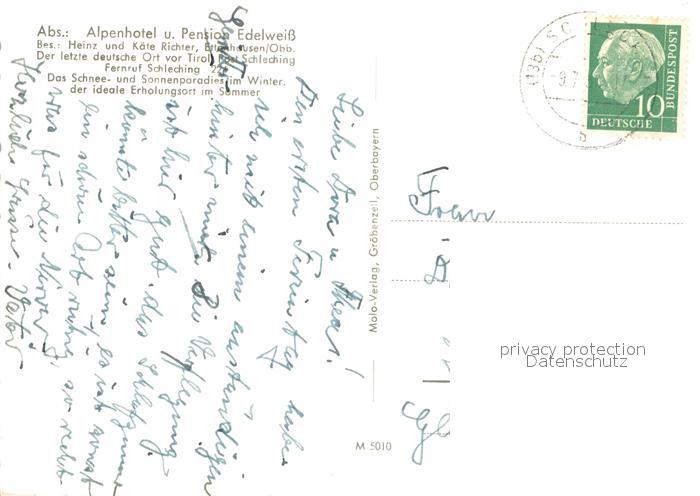 Abs.: Alpenhotel u. Pension Edelweiß
Bes.: Heinz und Käte Richter, Ettenhausen/Obb.
Der letzte deutsche Ort vor Tirol, Post Schleching
Fernruf Schleching
Das Schnee- und Sonnenparadies im Winter.
der ideale Erholungsort im Sommer
Liebe Dora u Theas!
Den ersten Ferientag habe
ich mit einem anständigen
hinter mir. Die Verpflegung
ist hier gut, das Schlafzimmer
könnte besser sein, es ist sonst
ein schöner Ort ruhig, so recht
was für die Nerven.
Herzliche Grüsse. Vater
Molo-Verlag, Gröbenzell, Oberbayern
M 5010
Frau
10
DEUTSCHE
BUNDESPOST
privacy protection
Datenschutz